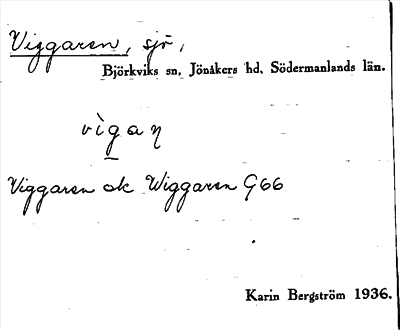 Viggaren, sjö,
Björkviks sn, Jönåkers hd, Södermanlands län.
vìgaɳ
Viggaren ok Wiggaren G66
Karin Bergström 1936.